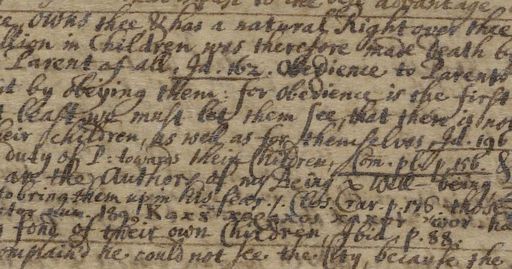 to the best advantage
owns thee & has a natural Right over thee
llion in Children was therefore made death by
Parent of all. Id. 162. Obedience to Parents
st by obeying them: for obedience is the first
t least we must let them see, that there is not
eir Children, as well as for themselves, Id. 196
duty of P: towards their Children, Com. p. 156 &
are the Authors of my Being & Well being
to bring them up in his fear. p. 176 those
Kaxs
g fond of their own Children Ibid. p. 88.
omplain'd he could not see the City because the